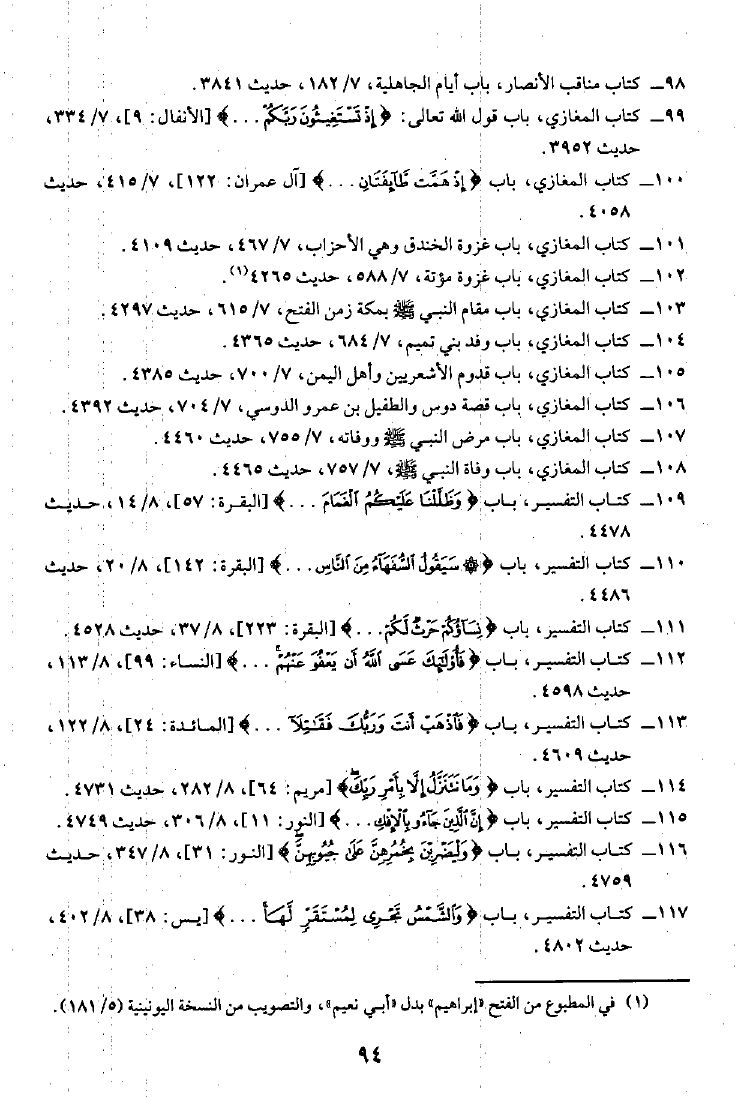 ٩٨ــ كتاب مناقب الأنصار، باب أيام الجاهلية، ٧/ ١٨٢، حديث ٣٨٤١.
٩٩ــ كتاب المغازي، باب قول الله تعالى: ﴿إِذْ تَسْتَغِيثُونَ رَبَّكُمْ ...﴾ [الأنفال: ٩]، ٧/ ٣٣٤،
حديث ٣٩٥٢.
١٠٠ــ كتاب المغازي، باب ﴿إِذْ هَمَّت طَّآئِفَتَانِ ...﴾ [آل عمران: ١٢٢]، ٧/ ٤١٥، حديث
٤٠٥٨.
١٠١ــ كتاب المغازي، باب غزوة الخندق وهي الأحزاب، ٧/ ٤٦٧، حديث ٤١٠٩.
١٠٢ــ كتاب المغازي، باب غزوة مؤتة، ٧/ ٥٨٨، حديث ٤٢٦٥(١).
١٠٣ــ كتاب المغازي، باب مقام النبي ﷺ بمكة زمن الفتح، ٧/ ٦١٥، حديث ٤٢٩٧.
١٠٤ــ كتاب المغازي، باب وفد بني تميم، ٧/ ٦٨٤، حديث ٤٣٦٥.
١٠٥ــ كتاب المغازي، باب قدوم الأشعريين وأهل اليمن، ٧/ ٧٠٠، حديث ٤٣٨٥.
١٠٦ــ كتاب المغازي، باب قصة دوس والطفيل بن عمرو الدوسي، ٧/ ٧٠٤، حديث ٤٣٩٢.
١٠٧ــ كتاب المغازي، باب مرض النبي ﷺ ووفاته، ٧/ ٧٥٥، حديث ٤٤٦٠.
١٠٨ــ كتاب المغازي، باب وفاة النبي ﷺ، ٧/ ٧٥٧، حديث ٤٤٦٥.
١٠٩ــ كتاب التفسير، باب ﴿وَظَلَّلْنَا عَلَيْكُمُ الْغَمَامَ ...﴾ [البقرة: ٥٧]، ٨/ ١٤، حديث
٤٤٧٨.
١١٠ــ كتاب التفسير، باب ﴿۞ سَيَقُولُ السُّفَهَآءُ مِنَ النَّاسِ ...﴾ [البقرة: ١٤٢]، ٨/ ٢٠، حديث
٤٤٨٦.
١١١ــ كتاب التفسير، باب ﴿نِسَآؤُكُمْ حَرْثٌ لَّكُمْ ...﴾ [البقرة: ٢٢٣]، ٨/ ٣٧، حديث ٤٥٢٨.
١١٢ــ كتاب التفسير، باب ﴿فَأُوْلَٰٓئِكَ عَسَى اللَّهُ أَن يَعْفُوَ عَنْهُمْ ...﴾ [النساء: ٩٩]، ٨/ ١١٣،
حديث ٤٥٩٨.
١١٣ــ كتاب التفسير، باب ﴿فَاذْهَبْ أَنتَ وَرَبُّكَ فَقَٰتِلَآ ...﴾ [المائدة: ٢٤]، ٨/ ١٢٢،
حديث ٤٦٠٩.
١١٤ــ كتاب التفسير، باب ﴿وَمَا نَتَنَزَّلُ إِلَّا بِأَمْرِ رَبِّكَ﴾ [مريم: ٦٤]، ٨/ ٢٨٢، حديث ٤٧٣١.
١١٥ــ كتاب التفسير، باب ﴿إِنَّ الَّذِينَ جَآءُو بِالْإِفْكِ ...﴾ [النور: ١١]، ٨/ ٣٠٦، حديث ٤٧٤٩.
١١٦ــ كتاب التفسير، باب ﴿وَلْيَضْرِبْنَ بِخُمُرِهِنَّ عَلَىٰ جُيُوبِهِنَّ﴾ [النور: ٣١]، ٨/ ٣٤٧، حديث
٤٧٥٩.
١١٧ــ كتاب التفسير، باب ﴿وَالشَّمْسُ تَجْرِى لِمُسْتَقَرٍّ لَّهَا ...﴾ [يس: ٣٨]، ٨/ ٤٠٢،
حديث ٤٨٠٢.
(١) في المطبوع من الفتح «إبراهيم» بدل «أبي نعيم»، والتصويب من النسخة اليونينية (٥/ ١٨١).
٩٤